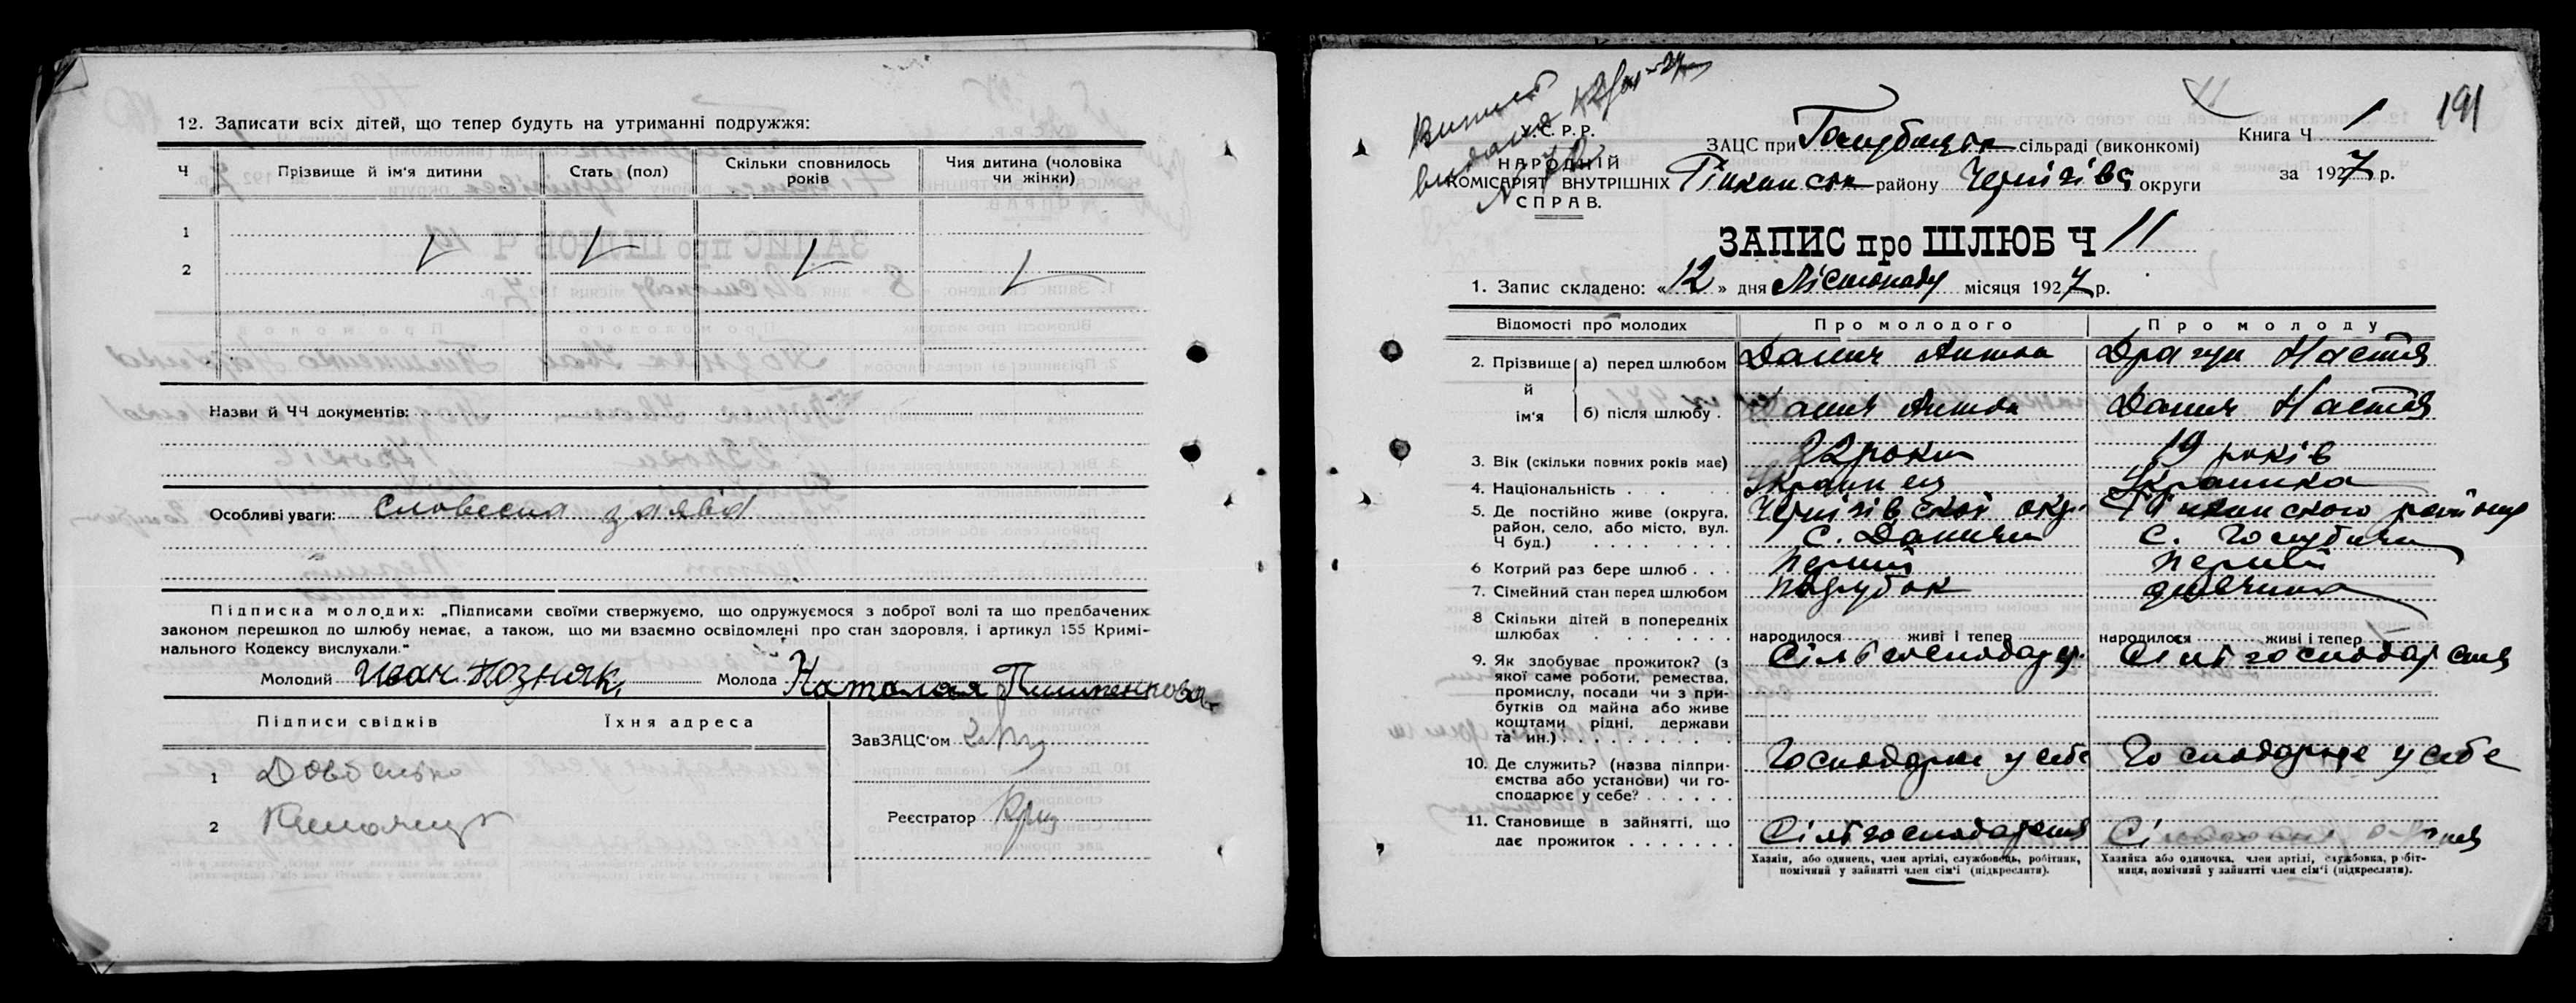 12. Записати всіх дітей, що тепер будуть на утриманні подружжя:
Ч
Прізвище й ім'я дитини
Стать (пол)
Скільки сповнилось років
Чия дитина (чоловіка чи жінки)
1
2
Назви й ЧЧ документів:
Особливі уваги: Словесна заява
Підписка молодих: „Підписами своїми ствержуємо, що одружуємося з доброї волі та що предбачених
законом перешкод до шлюбу немає, а також, що ми взаємно освідомлені про стан здоровля, і артикул 155 Кримі-
нального Кодексу вислухали."
Молодий Иван Позняк Молода Наталия
Підписи свідків Їхня адреса
ЗавЗАЦС'ом
1
2
Реєстратор
191
11
У.С.Р.Р.
НАРОДНІЙ
КОМІСАРІЯТ ВНУТРІШНІХ
СПРАВ.
ЗАЦС при сільраді (виконкомі)
району Чернігівс округи
Книга Ч 1
за 1927 р.
ЗАПИС про ШЛЮБ Ч 11
1. Запис складено: «12» дня Лістопаду місяця 1927 р.
Відомості про молодих
Про молодого
Про молоду
2. Прізвище й ім'я
а) перед шлюбом Данич Антон Драгун Настя
б) після шлюбу Данич Антон Данич Настя
3. Вік (скільки повних років має) 22 роки 19 років
4. Національність Українец Українка
5. Де постійно живе (округа, район, село, або місто, вул. Ч буд.)
Чернігівської окр. с. Даничи
району с. Голубичи
6 Котрий раз бере шлюб перший перший
7. Сімейний стан перед шлюбом парубок дівчина
8 Скільки дітей в попередніх шлюбах
народилося живі і тепер
народилося живі і тепер
9. Як здобуває прожиток? (з якої саме роботи, ремества, промислу, посади чи з прибутків од майна або живе коштами рідні, держави та ин.)
10. Де служить? (назва підприємства або установи) чи господарює у себе?
Господарює у себе
Господарює у себе
11. Становище в зайнятті, що дає прожиток
Хазяїн, або одинець, член артілі, службовець, робітник, помічний у зайнятті член сім'ї (підкреслити).
Хазяйка або одиночка, член артілі, службовка, робітниця, помічний у зайнятті член сім'ї (підкреслити).